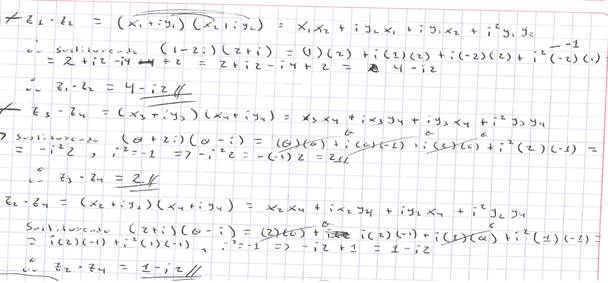 z₁-z₂ = (x₁+iy₁)(x₂+iy₂) = x₁x₂ + iy₂x₁ + iy₁x₂ + i²y₁y₂
∴ sustituyendo (1-2i)(2+i) = (1)(2) + i(1)(2) + i(-2)(2) + i²(-2)(1) -1
= 2+i2-i4 +2 = 2+i2-i4+2 = 4-i2
∴ z₁-z₂ = 4-i2//
z₃-z₄ = (x₃+iy₃)(x₄+iy₄) = x₃x₄ + ix₃y₄ + iy₃x₄ + i²y₃y₄
Sustituyendo (0+2i)(0-i) = (0)(0) + i(0)(-1) + i(2)(0) + i²(2)(-1) =
= -i²2, i²=-1 => -i²2 = -(-1)2 = 2//
∴ z₃-z₄ = 2//
z₂-z₄ = (x₂+iy₂)(x₄+iy₄) = x₂x₄ + ix₂y₄ + iy₂x₄ + i²y₂y₄
Sustituyendo (2+i)(0-i) = (2)(0) + i(2)(-1) + i(1)(0) + i²(1)(-1) =
= i(2)(-1) + i²(1)(-1), i²=-1 => -i2+1 = 1-i2
∴ z₂-z₄ = 1-i2//